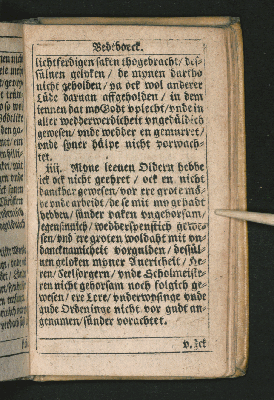 Bedeboeck.
lichtferdigen saken thogebracht/ des-
sülnen geloken/ de mynen dartho
nicht geholden/ ya ock wol anderer
Lüde daruan affgeholden/ in dem
iennen dat my Godt vplecht/ vnde in
aller wedderwerdicheit vngedüldich
gewesen/ vnde wedder en gemurret/
vnde syner hülpe nicht vorwach-
tet.
iiij. Myne leuen Oldern hebbe
ick ock nicht geehret/ ock en nicht
danckbar gewesen/ vor ere grote mö-
ye vnde arbeide/ de se mit my gehadt
hebben/ sünder vaken vngehorsam/
egensinnich/ wedderspenstich gewe-
sen/ vnd ere groten woldaht mit vn-
dancknamicheit vorgulden/ dessül-
uen geloken myner Auericheit/ He-
ren/ Seelsorgern/ vnde Scholmeiste-
ren nicht gehorsam noch folgich ge-
wesen/ ere Lere/ vnderwysinge vnde
gude Ordeninge nicht vor gudt an-
genamen/ sünder vorachtet.
v. Ick